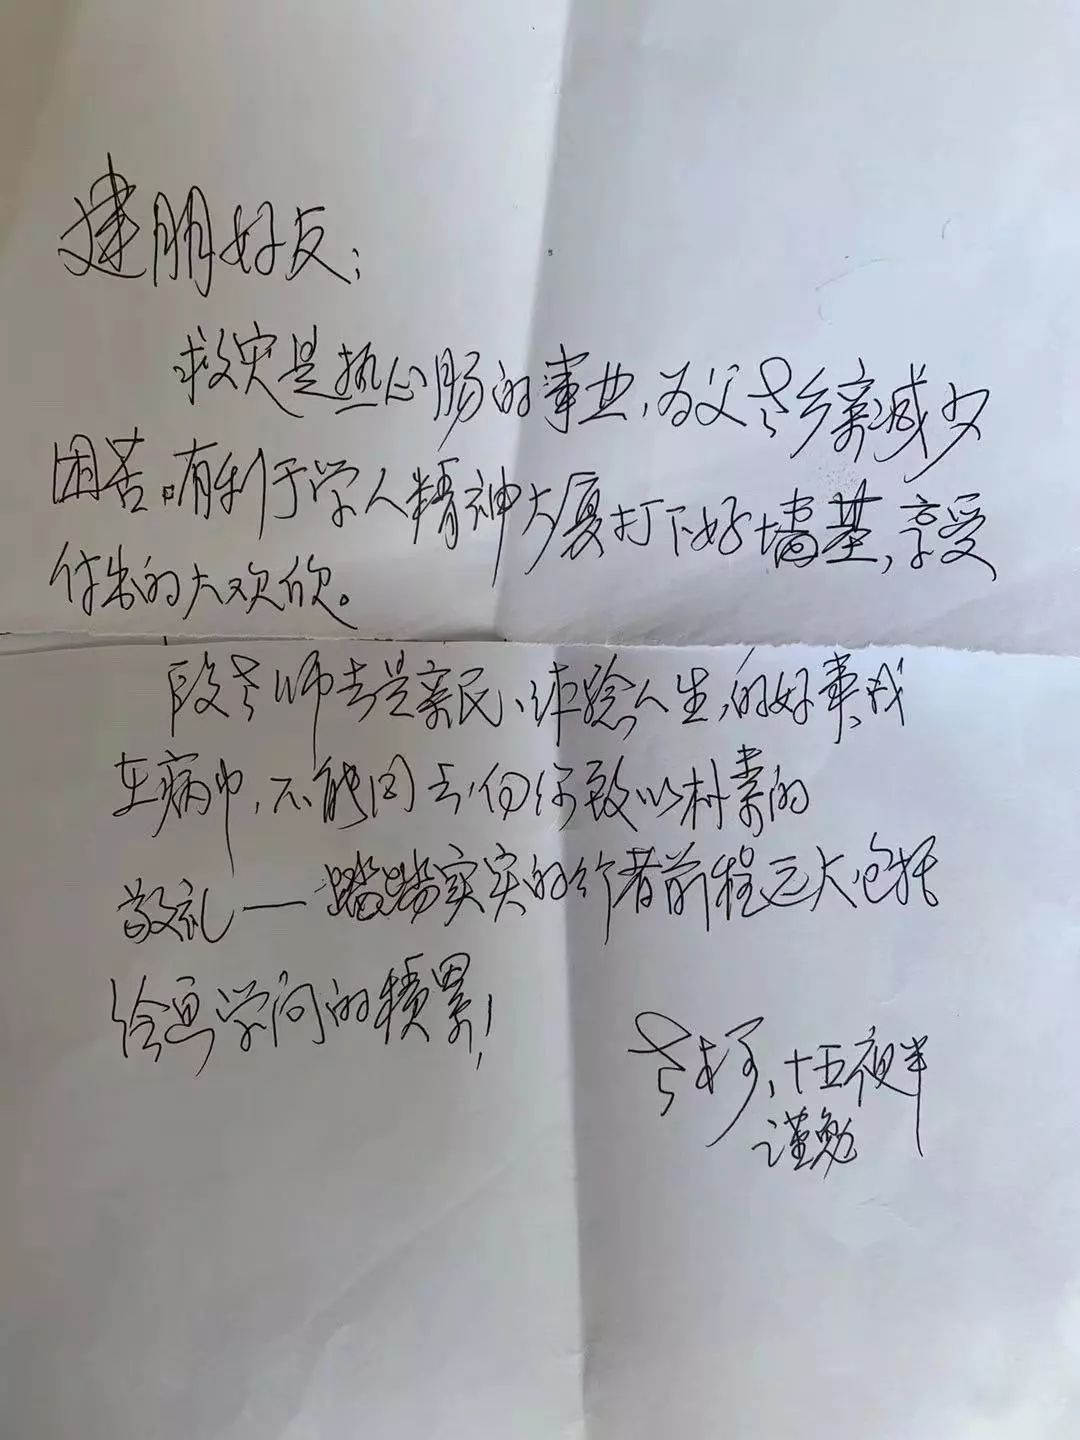 建朋好友：
救灾是热心肠的事业，为父老乡亲减少
困苦。有利于学人精神大厦打下好墙基，享受
付出的大欢欣。
段老师去是亲民、体验人生，的好事，我
在病中，不能同去，向你致以朴素的
敬礼——踏踏实实的行者前程远大，包括
绘画学问的积累！
老柯，十五夜半
谨勉